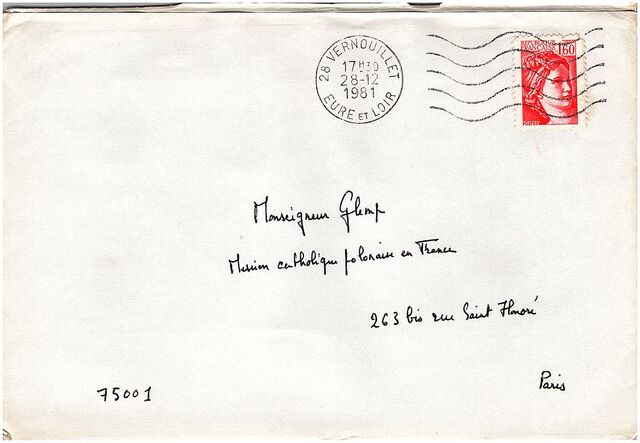 28 VERNOUILLET
17H30
28-12
1981
EURE ET LOIR
1,60
Monseigneur Glemp
Mission catholique polonaise en France
263 bis rue Saint Honoré
Paris
75001